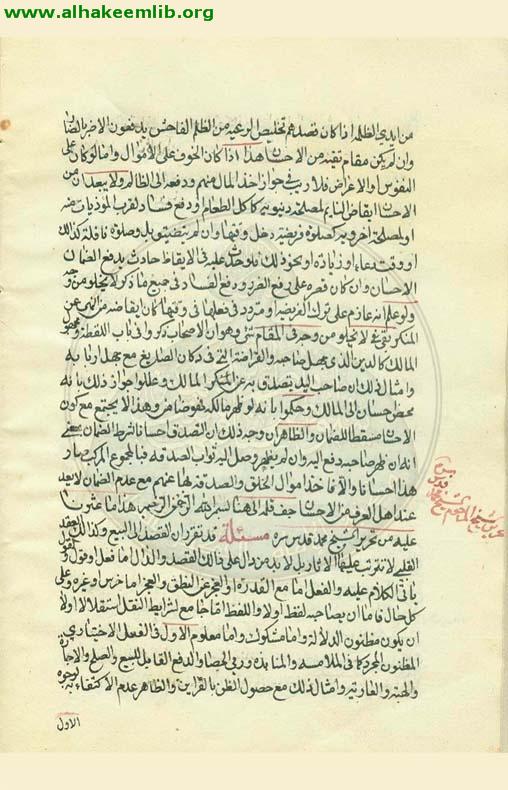 www.alhakeemlib.org
من ايدي الظلمة اذا كان قصدهم تخليص الرعيه من الظلم الفاحش يدفعون الاخر بالضمان
وان لم يكن مقام تقيد من الاحسان هذا اذا كان الخوف على الأموال واما لو كان على
النفوس والاغراض فلا ريب في جواز اخذ المال منهم ودفعه الى الظالم ولا يبعد ان من
الاحسان ايقاض النايم لمصلحة دنيوية كاكل الطعام او دفع فساد لقرب الموذيات منه
او لمصلحة اخرويه كصلوة فريضة دخل وقتها وان لم يتضيق بل وصلوة نافلة كذلك
او وقت دعاء او زيارة او نحو ذلك فلو حدث عليه في الايقاظ حادث يدفع الضمان
الاحسان وان كان قصره على رفع الضرر ودفع الفساد في جميع ما ذكر لا يخلو من وجه
ولو علم انه عازم على ترك الفريضة او متردد في فعلها في وقتها كان ايقاضه من النهي عن
المنكر بقي لا يخلو من وحرف المقام شئ وهو ان الاصحاب ذكروا في باب اللقطة ومجهول
المالك كالدين الذي جهل صاحبه والقراضة التي في دكان الصايغ مع جهل اربابه
وامثال ذلك ان صاحب اليد يتصدق به عن المالك وعللوا جواز ذلك بانه
محض احسان الى المالك وحكموا بانه لو ظهر مالكه ولم يرض وهذا لا يجتمع مع كون
الاحسان مسقطا للضمان والظاهر ان وجه ذلك ان التصدق احسان بشرط الضمان بمعنى
انه ان ظهر صاحبه دفع اليه وان لم يظهر وصل اليه ثواب الصدقه فبالمجموع المركب صار
هذا احسانا والا فاخذ اموال الخلق والصدقه بها عنهم مع عدم الضمان لا يعد
عند اهل العرف من الاحسان جف قلمه الى هنا هذا ما عثرنا
عليه من تحرير الشيخ محمد قدس سره مسئلة قد تقرر ان القصد الى البيع وكذلك العقد
القلبي لا تترتب عليها الاثار بل لا بد من دال على ذلك القصد والدال اما فعل او قول
ياتي الكلام عليه والفعل اما مع القدرة او العجز عن النطق والعجز اما خرس او غيره وعلى
كل حال فاما ان يصاحبه لفظ اولا واللفظ اما جامع لشرايط النقل استقلالا اولا
ان يكون مظنون الدلالة واما مشكوك واما معلوم الاول في الفعل الاختياري
المظنون المجرد كما في الملامسه والمنابذة ورمي الحصا والدفع القابل للبيع والصلح والاجارة
والهبة والعارية وامثال ذلك مع حصول الظن بالقراين والظاهر عدم الاكتفاء به لوجوه
الاول